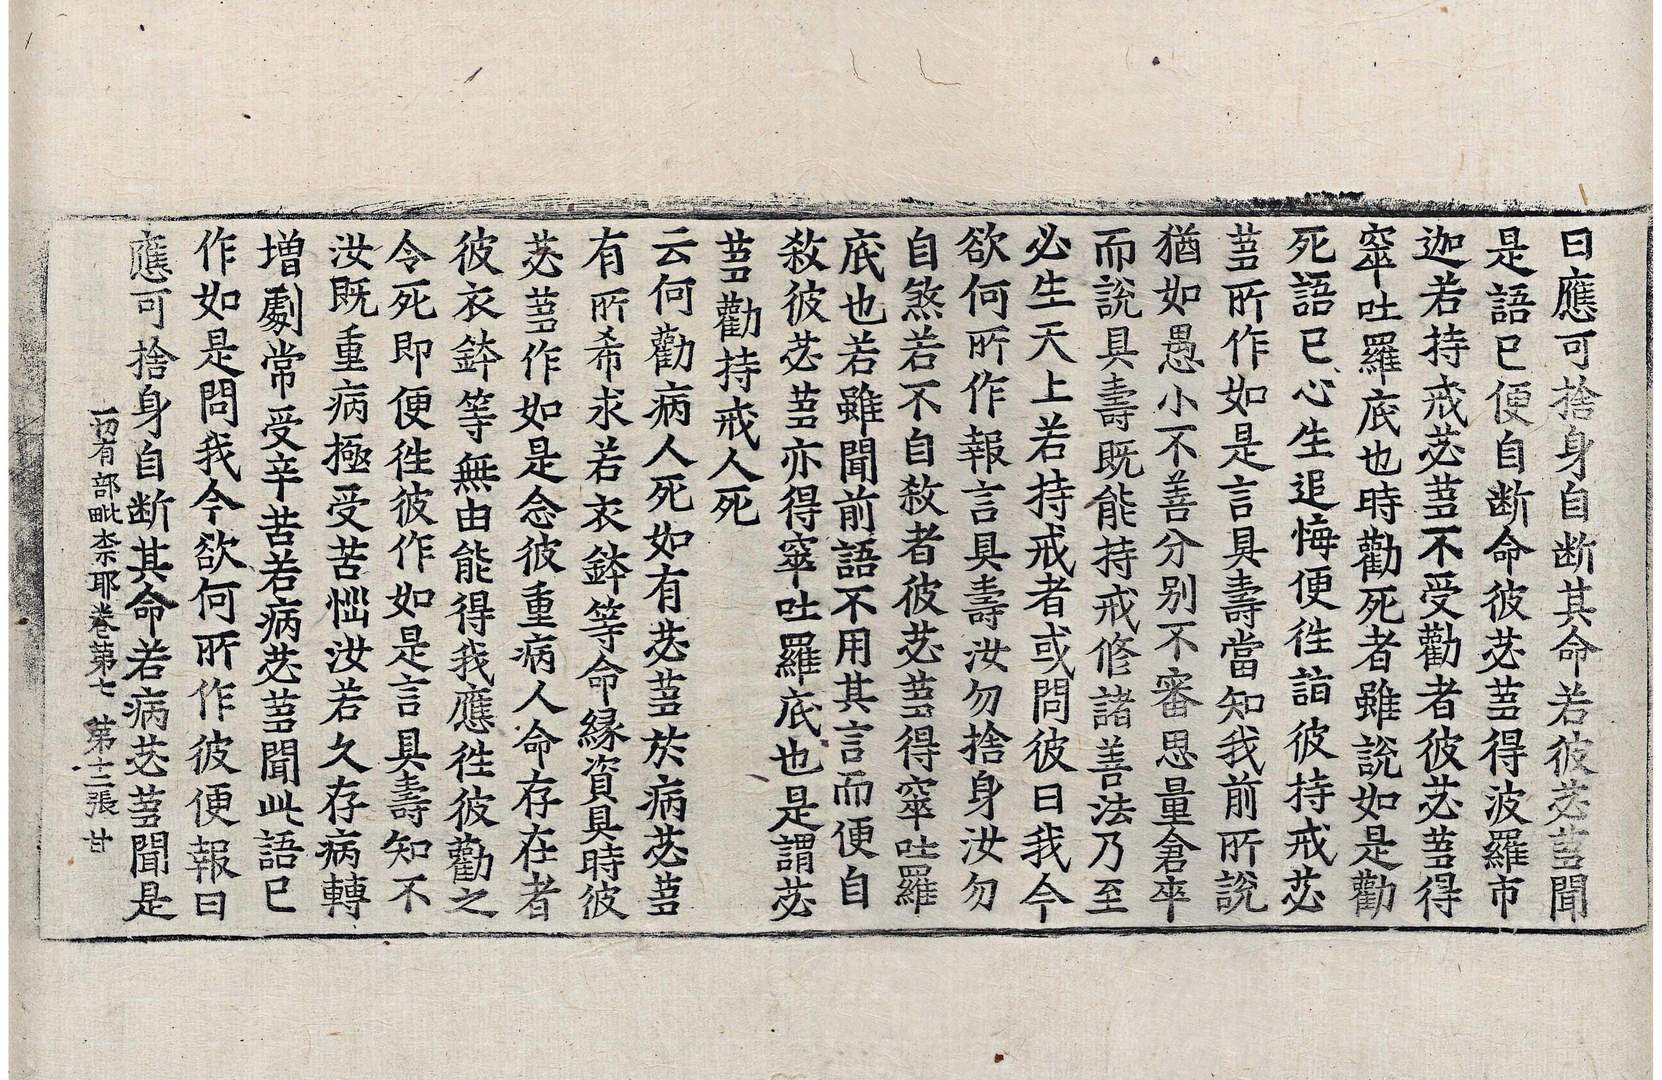 曰應可捨身自断其命若彼苾蒭聞
是語已便自断命彼苾蒭得波羅市
迦若持戒苾蒭不受勸者彼苾蒭得
窣吐羅底也時勸死者雖說如是勸
死語已心生追悔便往詣彼持戒苾
蒭所作如是言具壽當知我前所說
猶如愚小不善分别不審思量倉卒
而說具壽既能持戒修諸善法乃至
必生天上若持戒者或問彼曰我今
欲何所作報言具壽汝勿捨身汝勿
自煞若不自殺者彼苾蒭得窣吐羅
底也若雖聞前語不用其言而便自
殺彼苾蒭亦得窣吐羅底也是謂苾
蒭勸持戒人死
云何勸病人死如有苾蒭於病苾蒭
有所希求若衣鉢等命緣資具時彼
苾蒭作如是念彼重病人命存在者
彼衣鉢等無由能得我應往彼勸之
令死即便往彼作如是言具壽知不
汝既重病極受苦惱汝若久存病轉
增劇常受辛苦若病苾蒭聞此語已
作如是問我今欲何所作彼便報曰
應可捨身自断其命若病苾蒭聞是
一切有部毗柰耶卷第七 第十二張 甘